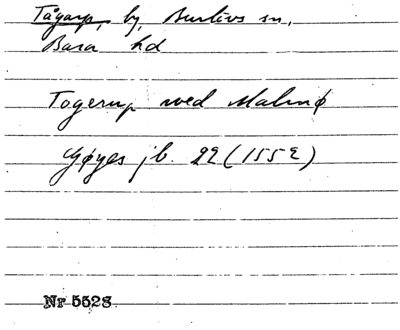 Tågarp, by, Burlövs sn,
Bara hd
Togerup ved Malmø
Gøyes jb. 22 (1552)
Nr 5528